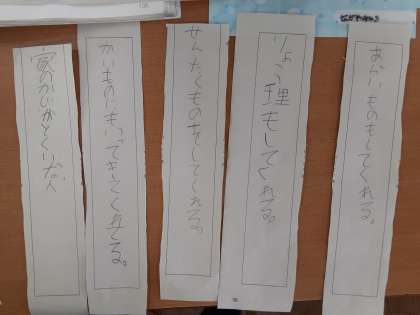 あらいものもしてくれる。
りょう理もしてくれる。
せんたくものもしてくれる。
かいものにもいってきてくれる。
家のかじがとくいな人